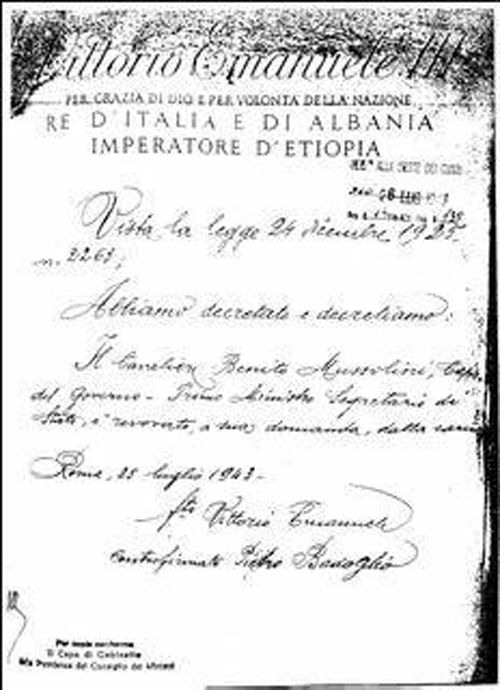 Vittorio Emanuele III
PER GRAZIA DI DIO E PER VOLONTÀ DELLA NAZIONE
RE D'ITALIA E DI ALBANIA
IMPERATORE D'ETIOPIA
Vista la legge 24 dicembre 1925
n. 2263;
Abbiamo decretato e decretiamo:
Il Cavaliere Benito Mussolini, Capo
del Governo - Primo Ministro Segretario di
Stato, è revocato, a sua domanda, dalla carica
Roma, 25 luglio 1943 -
fto Vittorio Emanuele
Controfirmato Pietro Badoglio
Per copia conforme
Il Capo di Gabinetto